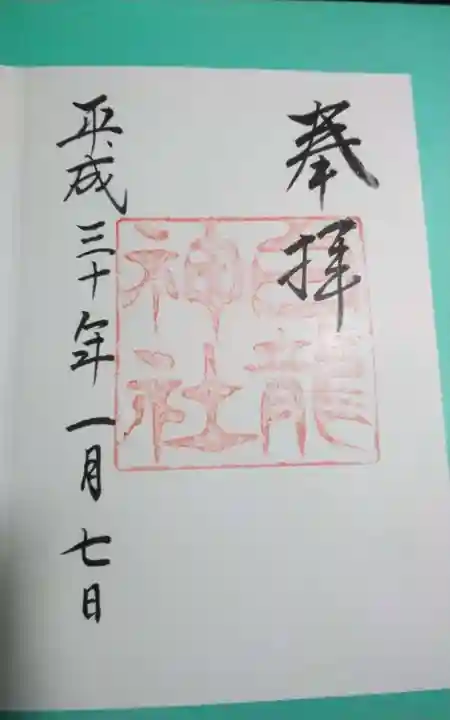 奉拝
白龍
神社
平成三十年一月七日